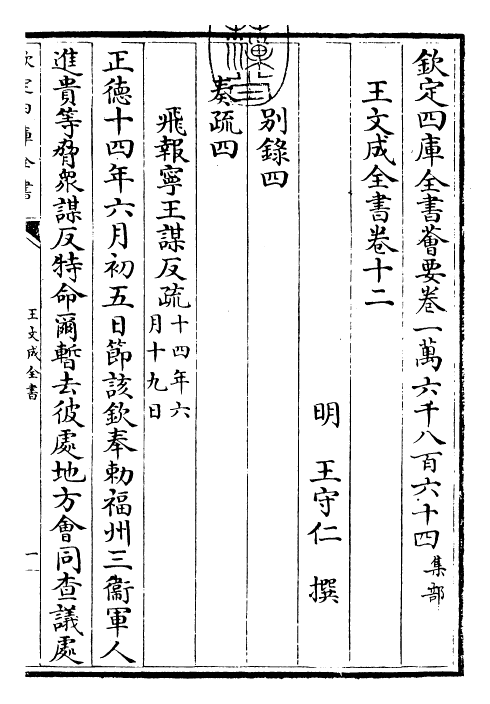 欽定四庫全書薈要卷一萬六千八百六十四集部
王文成全書卷十二
明 王守仁 撰
别錄四
奏疏四
飛報寧王謀反疏十四年六月十九日
正德十四年六月初五日節該欽奉勅福州三衞軍人
進貴等脅衆謀反特命爾暫去彼處地方會同查議處
欽定四庫全書
王文成全書
一